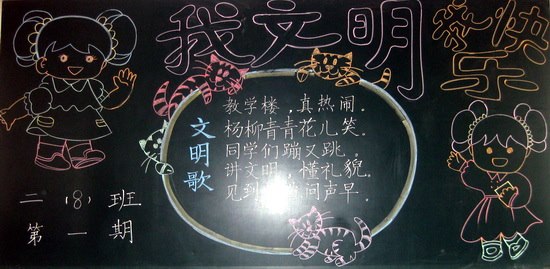 我文明 我快乐
文明歌
教学楼,真热闹.
杨柳青青花儿笑.
同学们蹦又跳.
讲文明,懂礼貌.
见到 问声早.
二(8)班
第一期